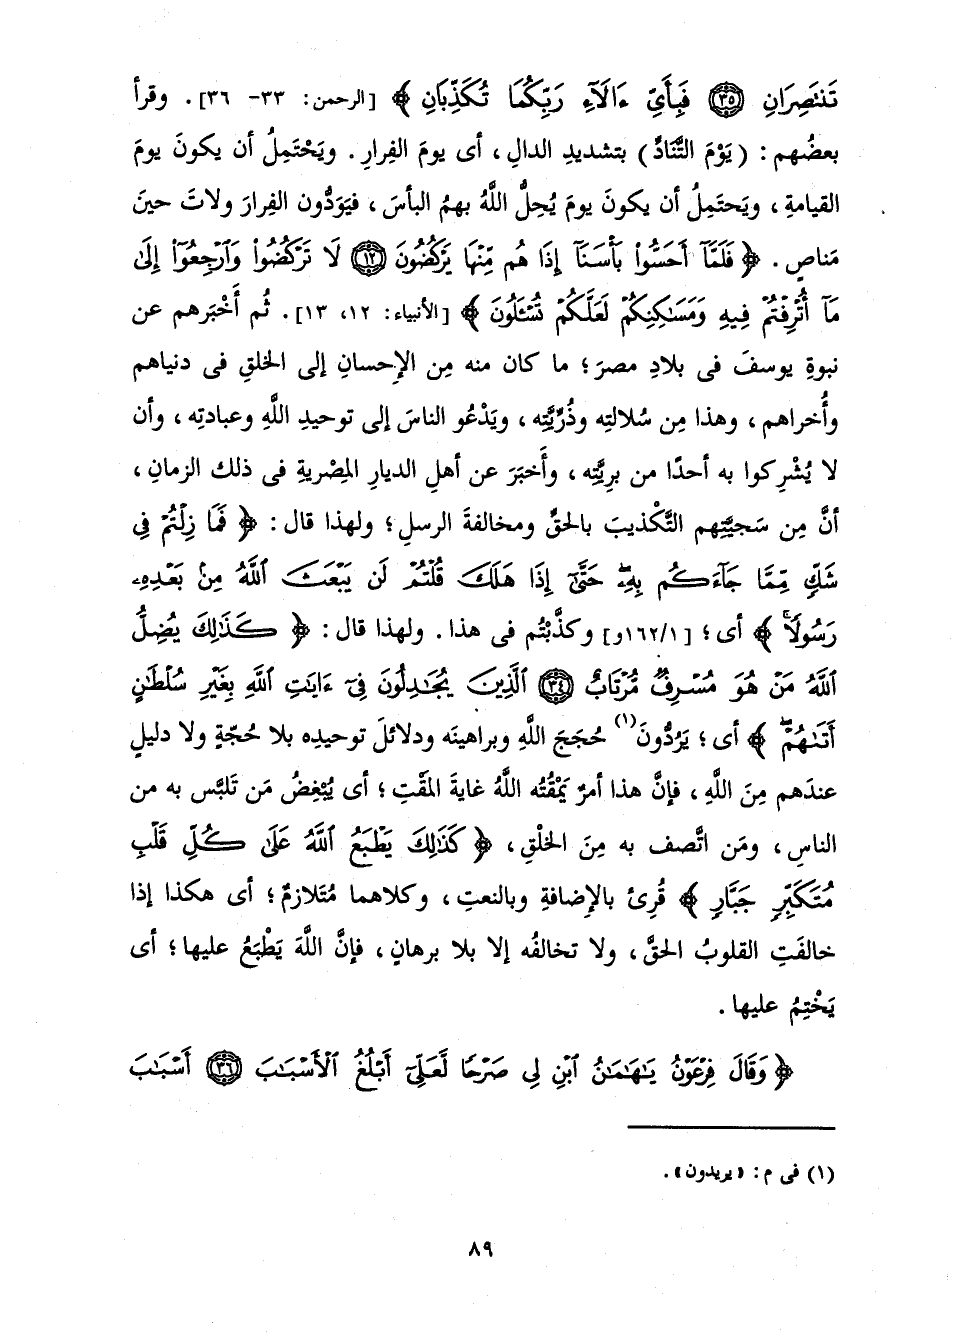 تَنتَصِرَانِ ﴿٣٥﴾ فَبِأَىِّ ءَالَآءِ رَبِّكُمَا تُكَذِّبَانِ ﴾ [الرحمن: ٣٣- ٣٦]. وقرأ
بعضُهم: (يَوْمَ التَّنَادِّ) بتشديدِ الدالِ، أى يومَ الفِرارِ. ويَحْتَمِلُ أن يكونَ يومَ
القيامةِ، ويَحتَمِلُ أن يكونَ يومَ يُحِلُّ اللَّهُ بهمُ البأسَ، فيَوَدُّون الفِرارَ ولاتَ حينَ
مَناصٍ. ﴿ فَلَمَّآ أَحَسُّواْ بَأْسَنَآ إِذَا هُم مِّنْهَا يَرْكُضُونَ ﴿١٢﴾ لَا تَرْكُضُواْ وَٱرْجِعُوٓاْ إِلَىٰ
مَآ أُتْرِفْتُمْ فِيهِ وَمَسَٰكِنِكُمْ لَعَلَّكُمْ تُسْـَٔلُونَ ﴾ [الأنبياء: ١٢، ١٣]. ثُم أَخْبَرهم عن
نبوةِ يوسفَ فى بلادِ مصرَ؛ ما كان منه مِن الإحسانِ إلى الخلقِ فى دنياهم
وأُخراهم، وهذا مِن سُلالتِه وذُرِّيَّتِه، ويَدْعُو الناسَ إلى توحيدِ اللَّهِ وعبادتِه، وأن
لا يُشْرِكوا به أحدًا من بريَّتِه، وأَخبَرَ عن أهلِ الديارِ المِصْريةِ فى ذلك الزمانِ،
أنَّ مِن سَجيَّتِهم التَّكْذيبَ بالحقِّ ومخالفةَ الرسلِ؛ ولهذا قال: ﴿ فَمَا زِلْتُمْ فِى
شَكٍّ مِّمَّا جَآءَكُم بِهِۦ حَتَّىٰٓ إِذَا هَلَكَ قُلْتُمْ لَن يَبْعَثَ ٱللَّهُ مِنۢ بَعْدِهِۦ
رَسُولًا ﴾ أى؛ [١/١٦٢و] وكذَّبْتُم فى هذا. ولهذا قال: ﴿ كَذَٰلِكَ يُضِلُّ
ٱللَّهُ مَنْ هُوَ مُسْرِفٌ مُّرْتَابٌ ﴿٣٤﴾ ٱلَّذِينَ يُجَٰدِلُونَ فِىٓ ءَايَٰتِ ٱللَّهِ بِغَيْرِ سُلْطَٰنٍ
أَتَىٰهُمْ ﴾ أى؛ يَرُدُّونَ(١) حُجَجَ اللَّهِ وبراهينَه ودلائلَ توحيدِه بلا حُجّةٍ ولا دليلٍ
عندَهم مِنَ اللَّهِ، فإنَّ هذا أمرٌ يَمْقُتُه اللَّهُ غايةَ المَقْتِ؛ أى يُبْغِضُ مَن تَلبَّس به من
الناسِ، ومَن اتَّصف به مِنَ الخلْقِ، ﴿ كَذَٰلِكَ يَطْبَعُ ٱللَّهُ عَلَىٰ كُلِّ قَلْبِ
مُتَكَبِّرٍ جَبَّارٍ ﴾ قُرِئ بالإضافةِ وبالنعتِ، وكلاهما مُتَلازمٌ؛ أى هكذا إذا
خالفَتِ القلوبُ الحقَّ، ولا تخالفُه إلا بلا برهانٍ، فإنَّ اللَّهَ يَطْبَعُ عليها؛ أى
يَخْتِمُ عليها.
﴿ وَقَالَ فِرْعَوْنُ يَٰهَٰمَٰنُ ٱبْنِ لِى صَرْحًا لَّعَلِّىٓ أَبْلُغُ ٱلْأَسْبَٰبَ ﴿٣٦﴾ أَسْبَٰبَ
(١) فى م: «يريدون».
٨٩